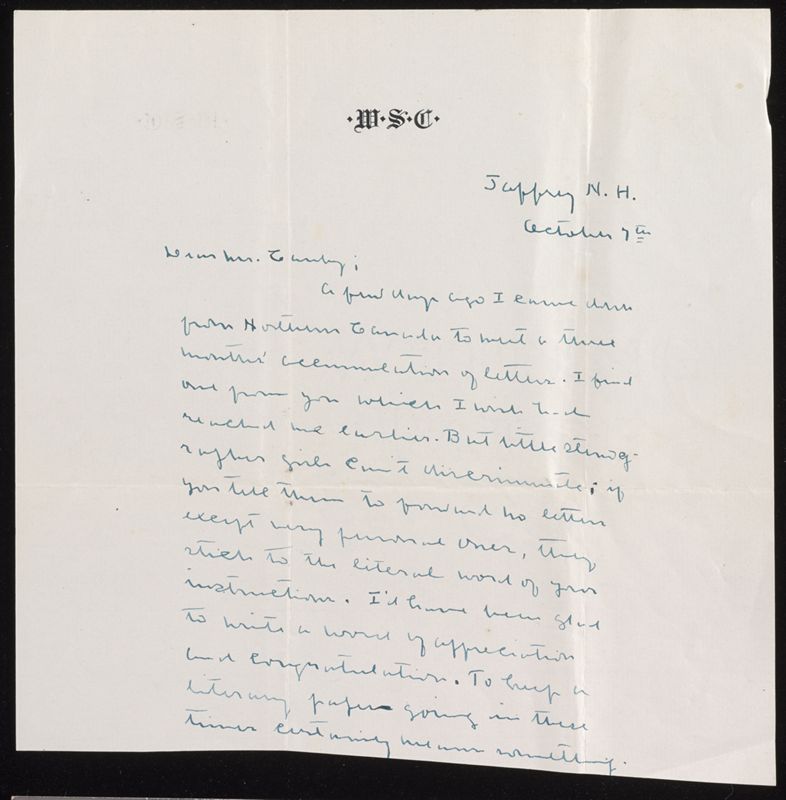 ·W·S·C·
Jaffrey N. H.
October 7th
Dear Mr. Canby;
A few days ago I came down
from Northern Canada to meet a three
months' accumulation of letters. I find
one from you which I wish had
reached me earlier. But little stenog-
rapher girls can't discriminate; if
you tell them to forward no letters
except very personal ones, they
stick to the literal word of your
instructions. I'd have been glad
to write a word of appreciation
and congratulation. To keep a
literary paper going in these
times certainly means something.